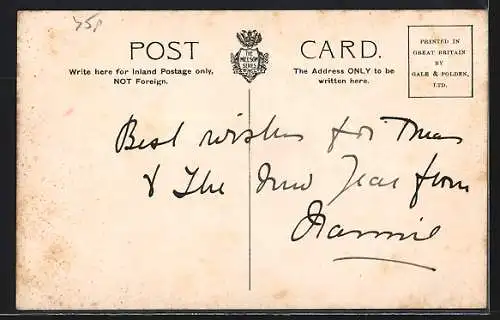 75p
POST CARD.
THE
WELLSON
SERIES
Write here for Inland Postage only,
NOT Foreign.
The Address ONLY to be
written here.
PRINTED IN
GREAT BRITAIN
BY
GALE & POLDEN,
LTD.
Best wishes for Xmas
& The New Year from